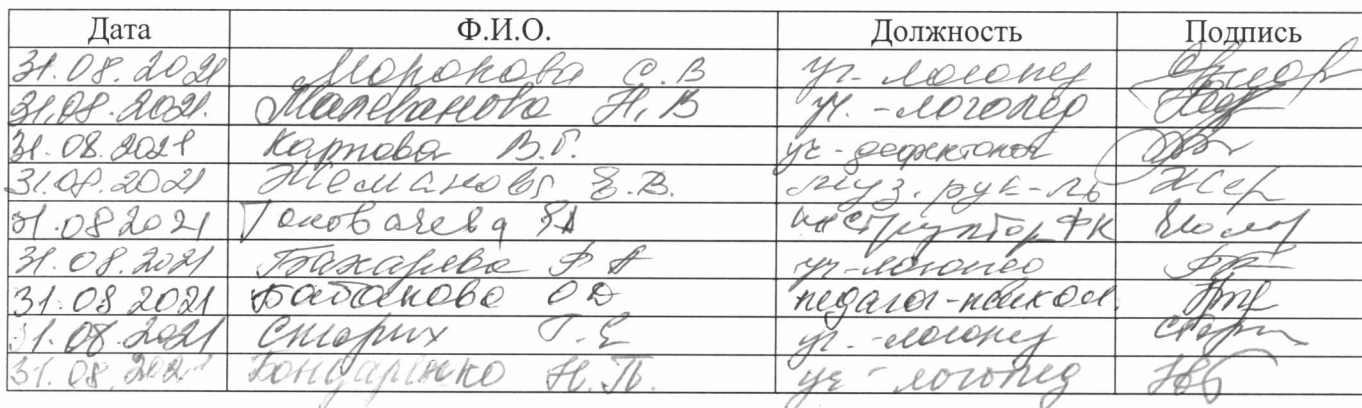 Дата Ф.И.О. Должность Подпись
31.08.2021 Моронова С.В уч.-логопед
31.08.2021. Малеванова Н.В уч.-логопед
31.08.2021 Карпова В.Г. уч-дефектолог
31.08.2021 Жеманова Е.В. муз. рук-ль
31.08 2021 инструктор ФК
31.08.2021 уч-логопед
31.08 2021 Бабанова О.Д педагог-психол.
31.08.2021 Старих Т.Е уч.-логопед
31.08.2021 Бондаренко Н.П. уч-логопед